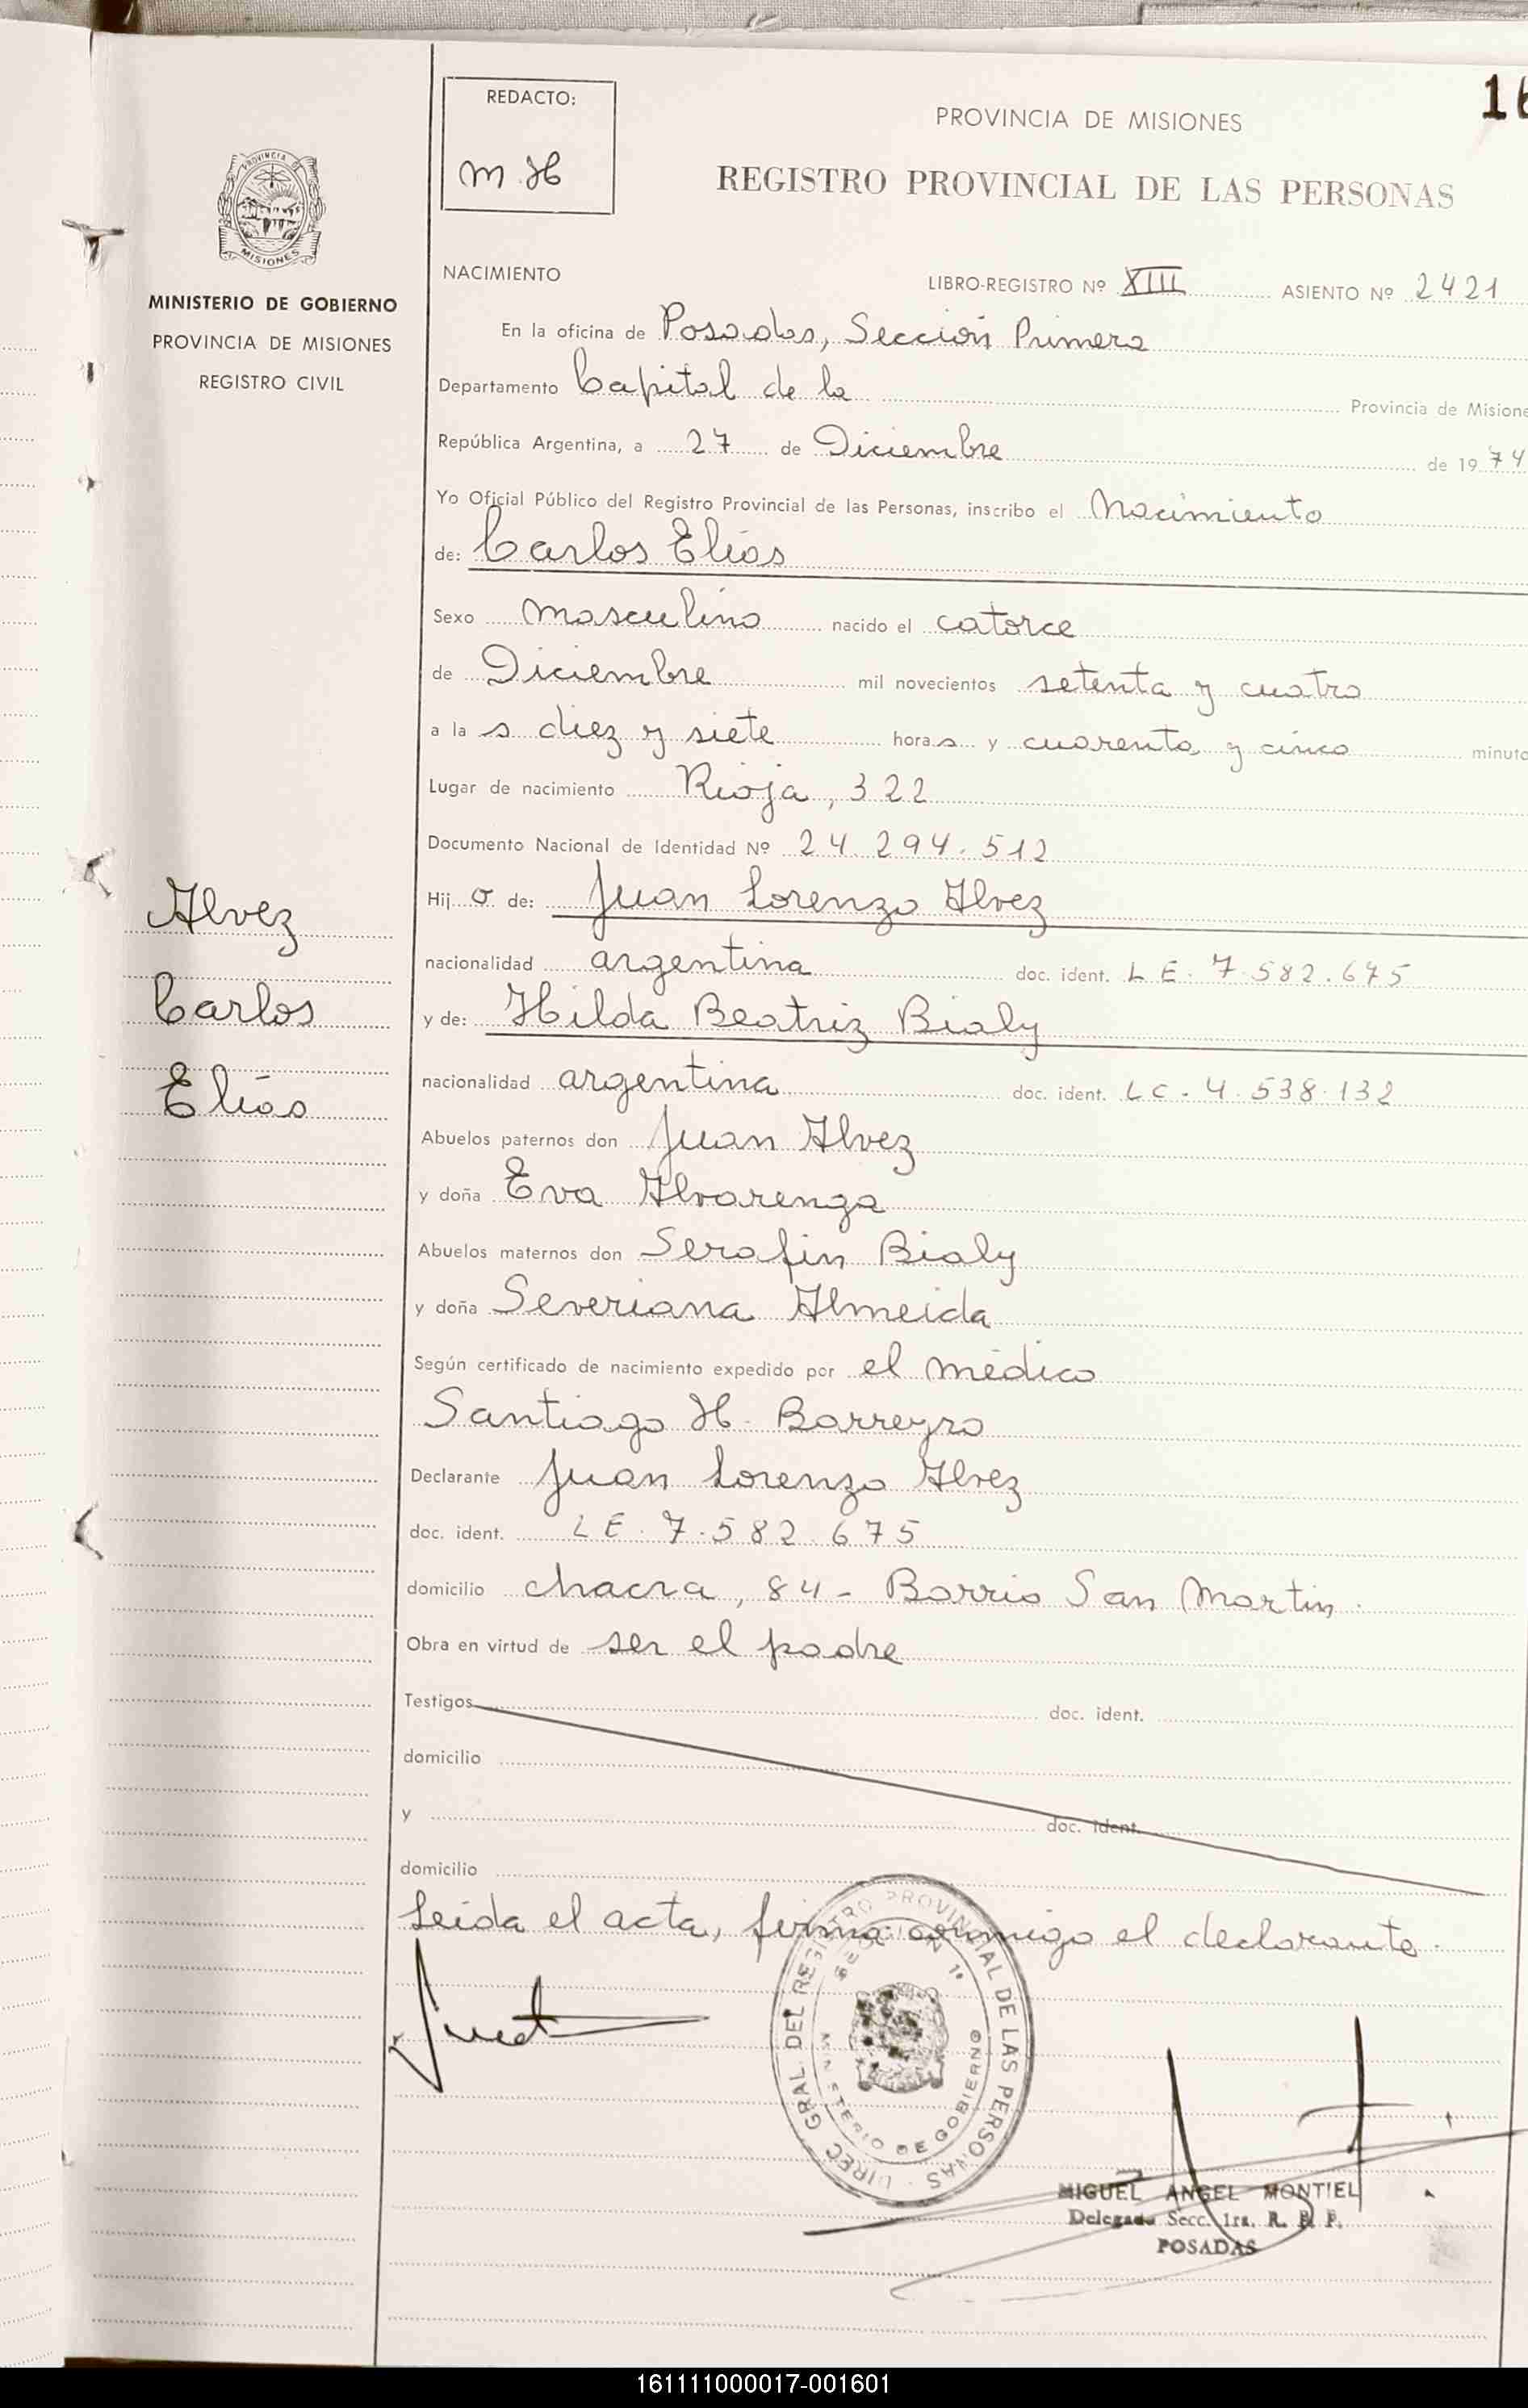 16
REDACTO:
M. H
PROVINCIA DE MISIONES
REGISTRO PROVINCIAL DE LAS PERSONAS
PROVINCIA DE
MISIONES
MINISTERIO DE GOBIERNO
PROVINCIA DE MISIONES
REGISTRO CIVIL
NACIMIENTO LIBRO-REGISTRO Nº XIII ASIENTO Nº 2421
En la oficina de Posadas, Sección Primera
Departamento Capital de la Provincia de Misione
República Argentina, a 27 de Diciembre de 1974
Yo Oficial Público del Registro Provincial de las Personas, inscribo el Nacimiento
de: Carlos Elías
Sexo masculino nacido el catorce
de Diciembre mil novecientos setenta y cuatro
a la s diez y siete hora s y cuarenta y cinco minuto
Lugar de nacimiento Rioja, 322
Documento Nacional de Identidad Nº 24.294.512
Hij o de: Juan Lorenzo Alvez
nacionalidad argentina doc. ident. L E. 7.582.675
y de: Hilda Beatriz Bialy
nacionalidad argentina doc. ident. L C. 4.538.132
Alvez
Carlos
Elías
Abuelos paternos don Juan Alvez
y doña Eva Alvarenga
Abuelos maternos don Serafin Bialy
y doña Severiana Almeida
Según certificado de nacimiento expedido por el médico
Santiago H. Barreyro
Declarante Juan Lorenzo Alvez
doc. ident. L E. 7.582.675
domicilio chacra, 84 - Barrio San Martin.
Obra en virtud de ser el padre
Testigos doc. ident.
domicilio
y doc. ident.
domicilio
Leída el acta, firma conmigo el declarante.
DIREC. GRAL. DEL REGISTRO PROVINCIAL DE LAS PERSONAS
SECCION 1ª
MINISTERIO DE GOBIERNO
MIGUEL ANGEL MONTIEL
Delegado Secc. 1ra. R. P. P.
POSADAS
161111000017-001601